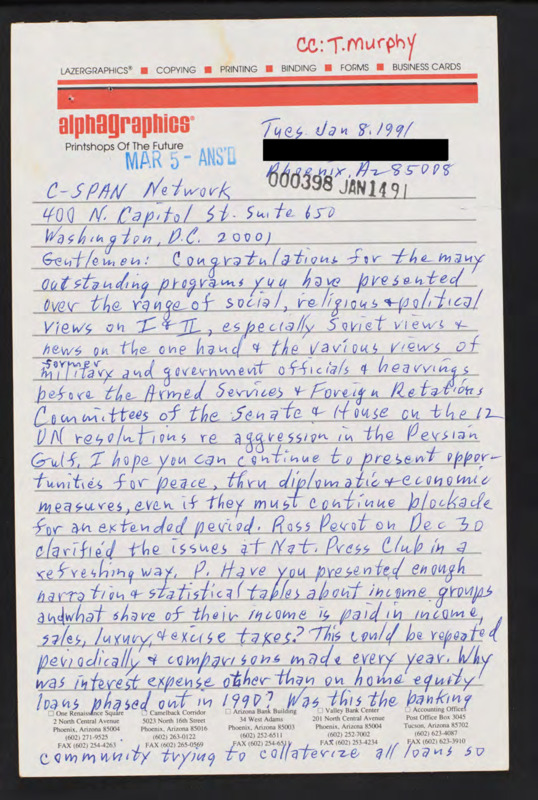 CC: T. Murphy
LAZERGRAPHICS® ■ COPYING ■ PRINTING ■ BINDING ■ FORMS ■ BUSINESS CARDS
alphagraphics®
Printshops Of The Future
MAR 5 - ANS'D
Tues. Jan 8, 1991
Phoenix, Az 85008
000398 JAN 14 91
C-SPAN Network
400 N. Capitol St. Suite 650
Washington, D.C. 20001
Gentlemen: Congratulations for the many
outstanding programs you have presented
over the range of social, religious & political
views on I & II, especially Soviet views &
news on the one hand & the various views of
former
military and government officials & hearrings
before the Armed Services & Foreign Relations
Committees of the Senate & House on the 12
UN resolutions re aggression in the Persian
Gulf. I hope you can continue to present oppor-
tunities for peace, thru diplomatic & economic
measures, even if they must continue blockade
for an extended period. Ross Perot on Dec 30
clarified the issues at Nat. Press Club in a
refreshing way. P. Have you presented enough
narration & statistical tables about income groups
and what share of their income is paid in income,
sales, luxury, & excise taxes? This could be repeated
periodically & comparisons made every year. Why
was interest expense other than on home equity
loans phased out in 1990? Was this the banking
□ One Renaissance Square
2 North Central Avenue
Phoenix, Arizona 85004
(602) 271-9525
FAX (602) 254-4263
□ Camelback Corridor
5023 North 16th Street
Phoenix, Arizona 85016
(602) 263-0122
FAX (602) 265-0569
□ Arizona Bank Building
34 West Adams
Phoenix, Arizona 85003
(602) 252-6511
FAX (602) 254-6515
□ Valley Bank Center
201 North Central Avenue
Phoenix, Arizona 85004
(602) 252-7002
FAX (602) 253-4234
□ Accounting Office
Post Office Box 3045
Tucson, Arizona 85702
(602) 623-4087
FAX (602) 623-3910
community trying to collaterize all loans so